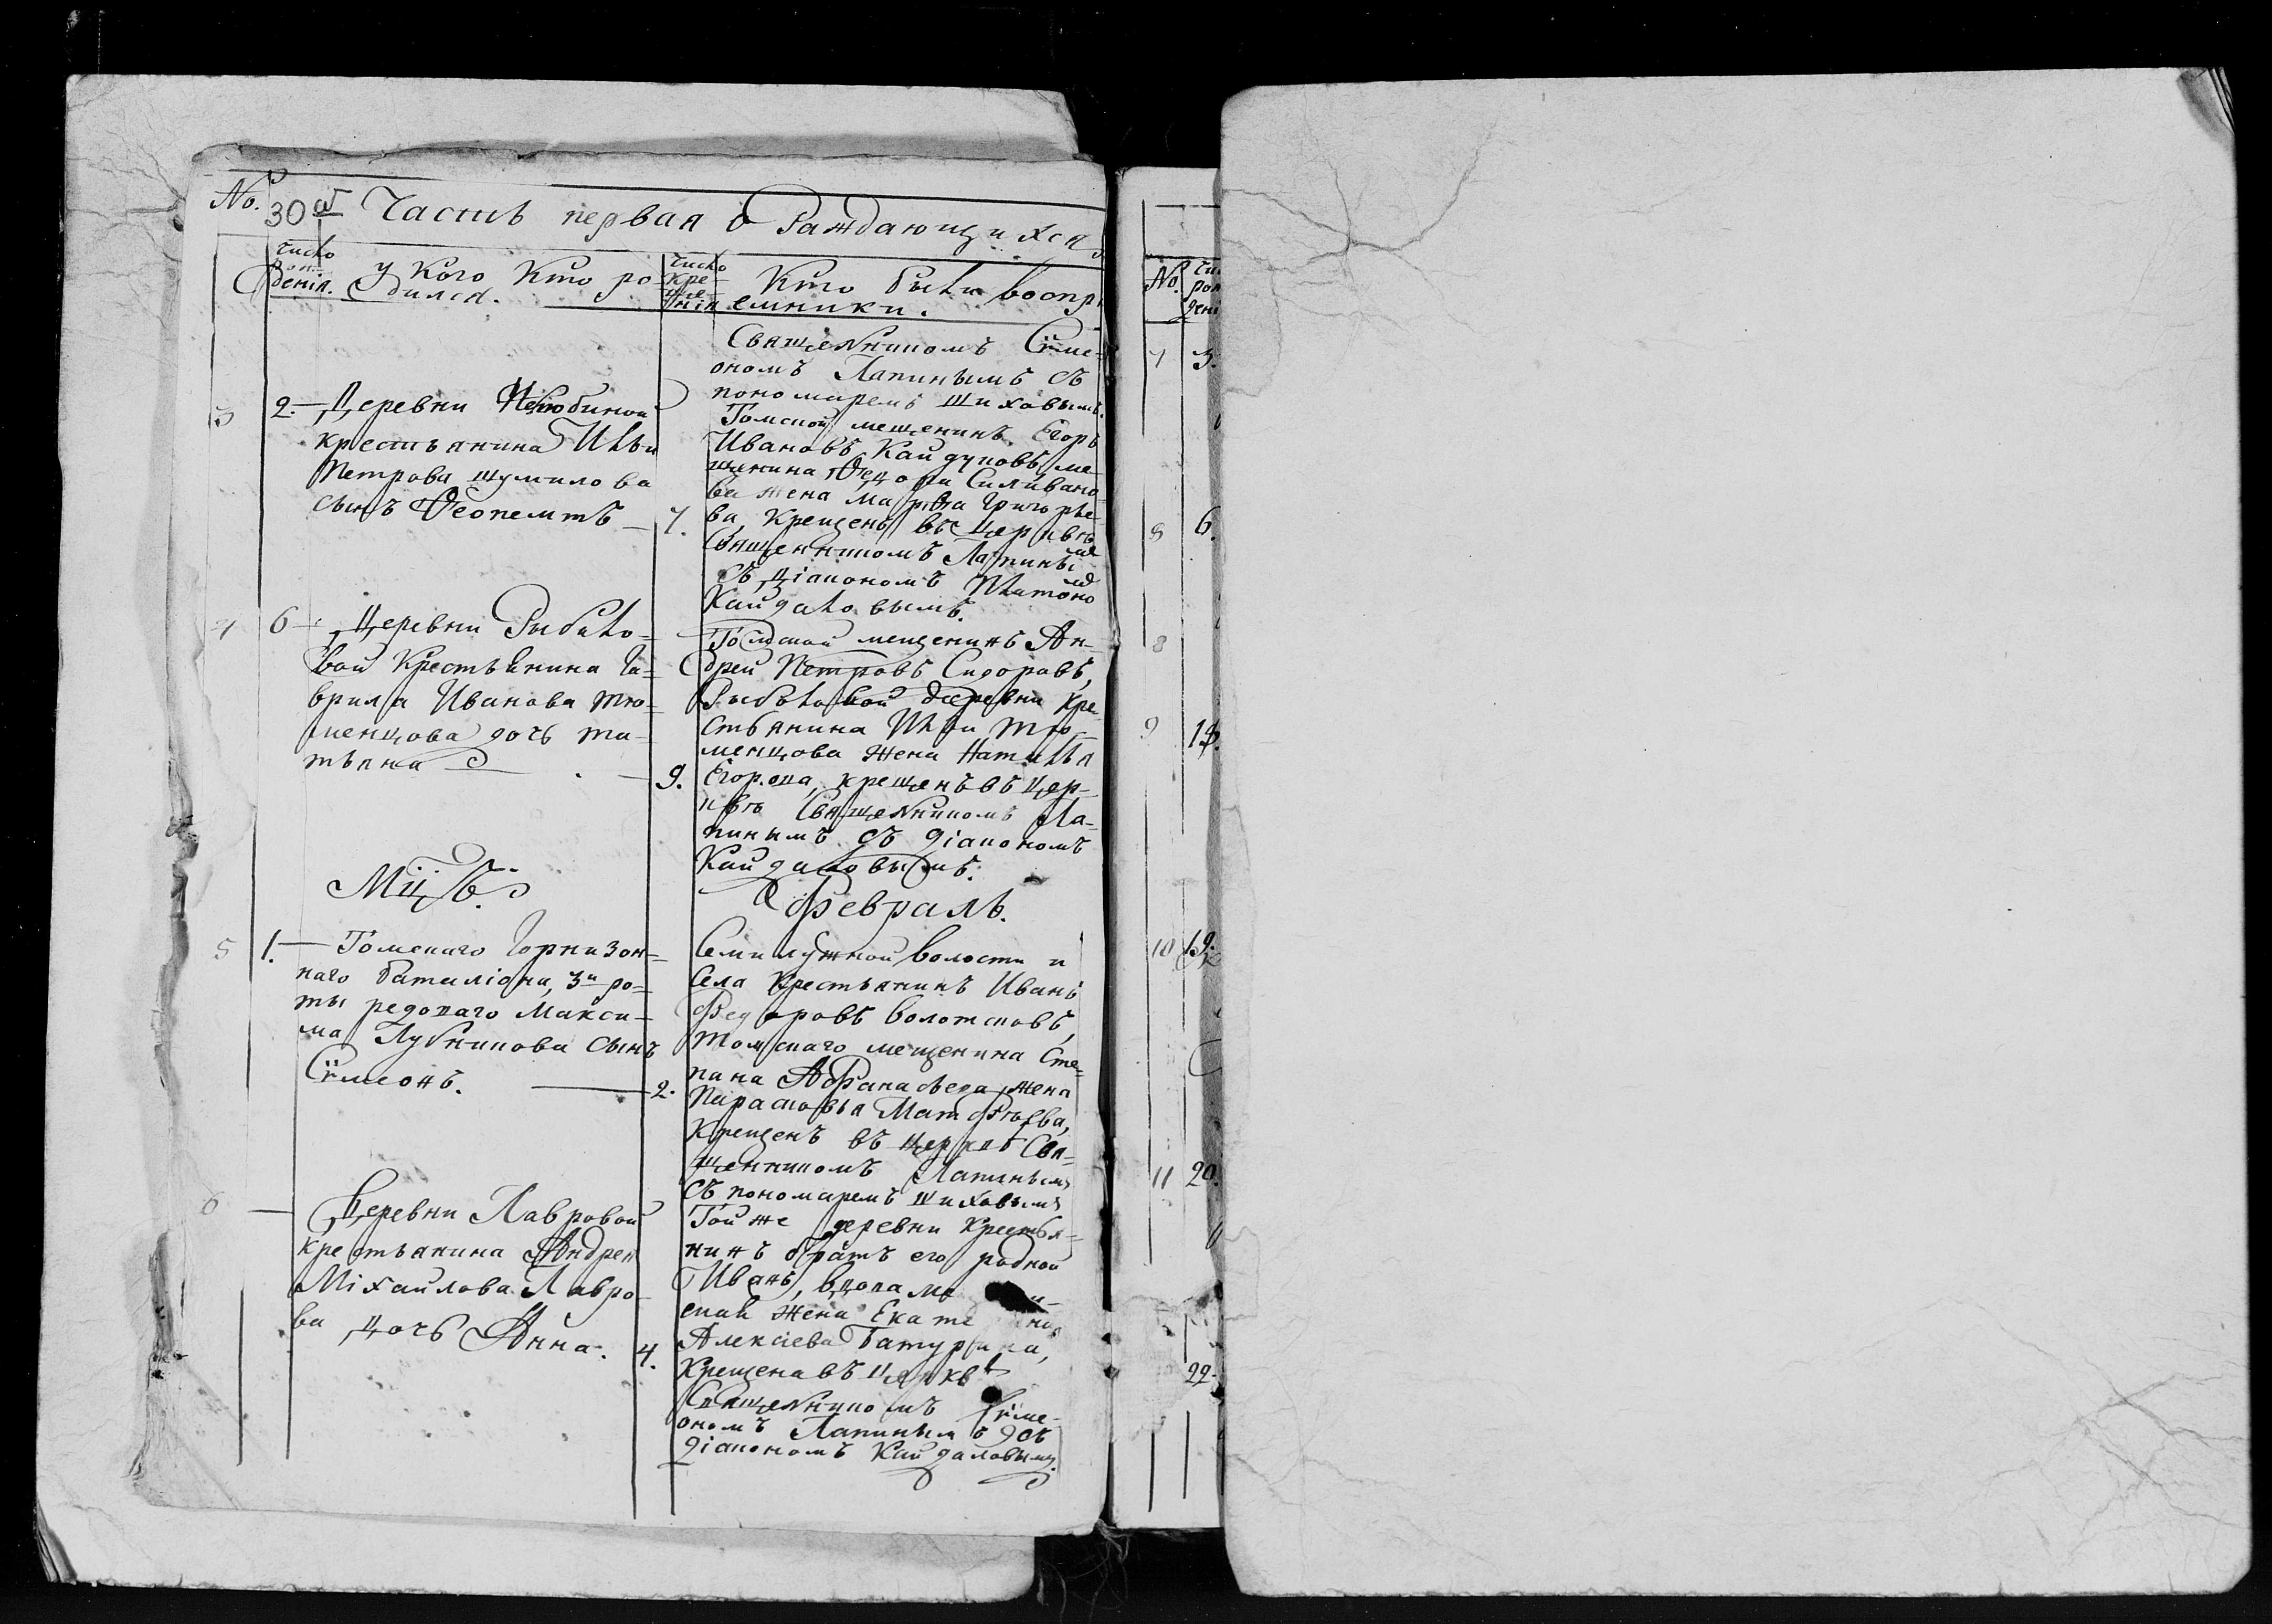 No. 30 об Часть первая о Раждающихся
число рожденія.
у кого кто родился.
число крещенія
Кто были воспріемники.
Священникомъ Сѵме-
ономъ Лапинымъ съ
пономаремъ Шиховымъ.
3 2. Деревни Нелюбиной
крестьянина Ильи
Петрова Шумилова
сынъ Феопемтъ 7.
Томской мещенинъ Егоръ
Ивановъ Кайдуковъ, ме-
щенина Федора Силивано-
ва жена Марфа Григорье-
ва, крещенъ въ церквѣ
Священникомъ Лапинымъ
съ діакономъ Платоно
Кайдаловымъ.
4 6 Деревни Рыбало-
вой крестьянина Га-
врила Иванова Тю-
менцова дочь Та-
тьяна 9.
Томской мещенинъ Ан-
дрей Петровъ Сидоровъ,
Рыбаловой деревни кре-
стьянина Ильи Тю-
менцова жена Наталья
Егорова, крещенъ въ цер-
квѣ Священникомъ Ла-
пинымъ съ діакономъ
Кайдаловымъ.
Мцъ.
Февраль.
5 1. Томскаго Горнизон-
наго баталіона, 3й ро-
ты редоваго Макси-
ма Лубникова сынъ
Сѵмеонъ. 2.
Семилужной волости и
села крестьянинъ Иванъ
Федоровъ Болотсковъ,
Томскаго мещенина Сте-
пана Афанасьева жена
Парасковья Матфѣева,
крещенъ въ церквѣ Свя-
щенникомъ Лапинымъ
съ пономаремъ Шиховымъ
6 Деревни Лавровой
крестьянина Андрея
Міхайлова Лавро-
ва дочь Анна. 4.
Той же деревни крестья-
нинъ братъ его родной
Иванъ,
жена
Алексіева
крещена въ церквѣ
Священникомъ Сѵме-
ономъ Лапинымъ съ
діакономъ Кайдаловымъ.
No.
7 3.
8 6.
8
9
10 19.
11 20.
22.